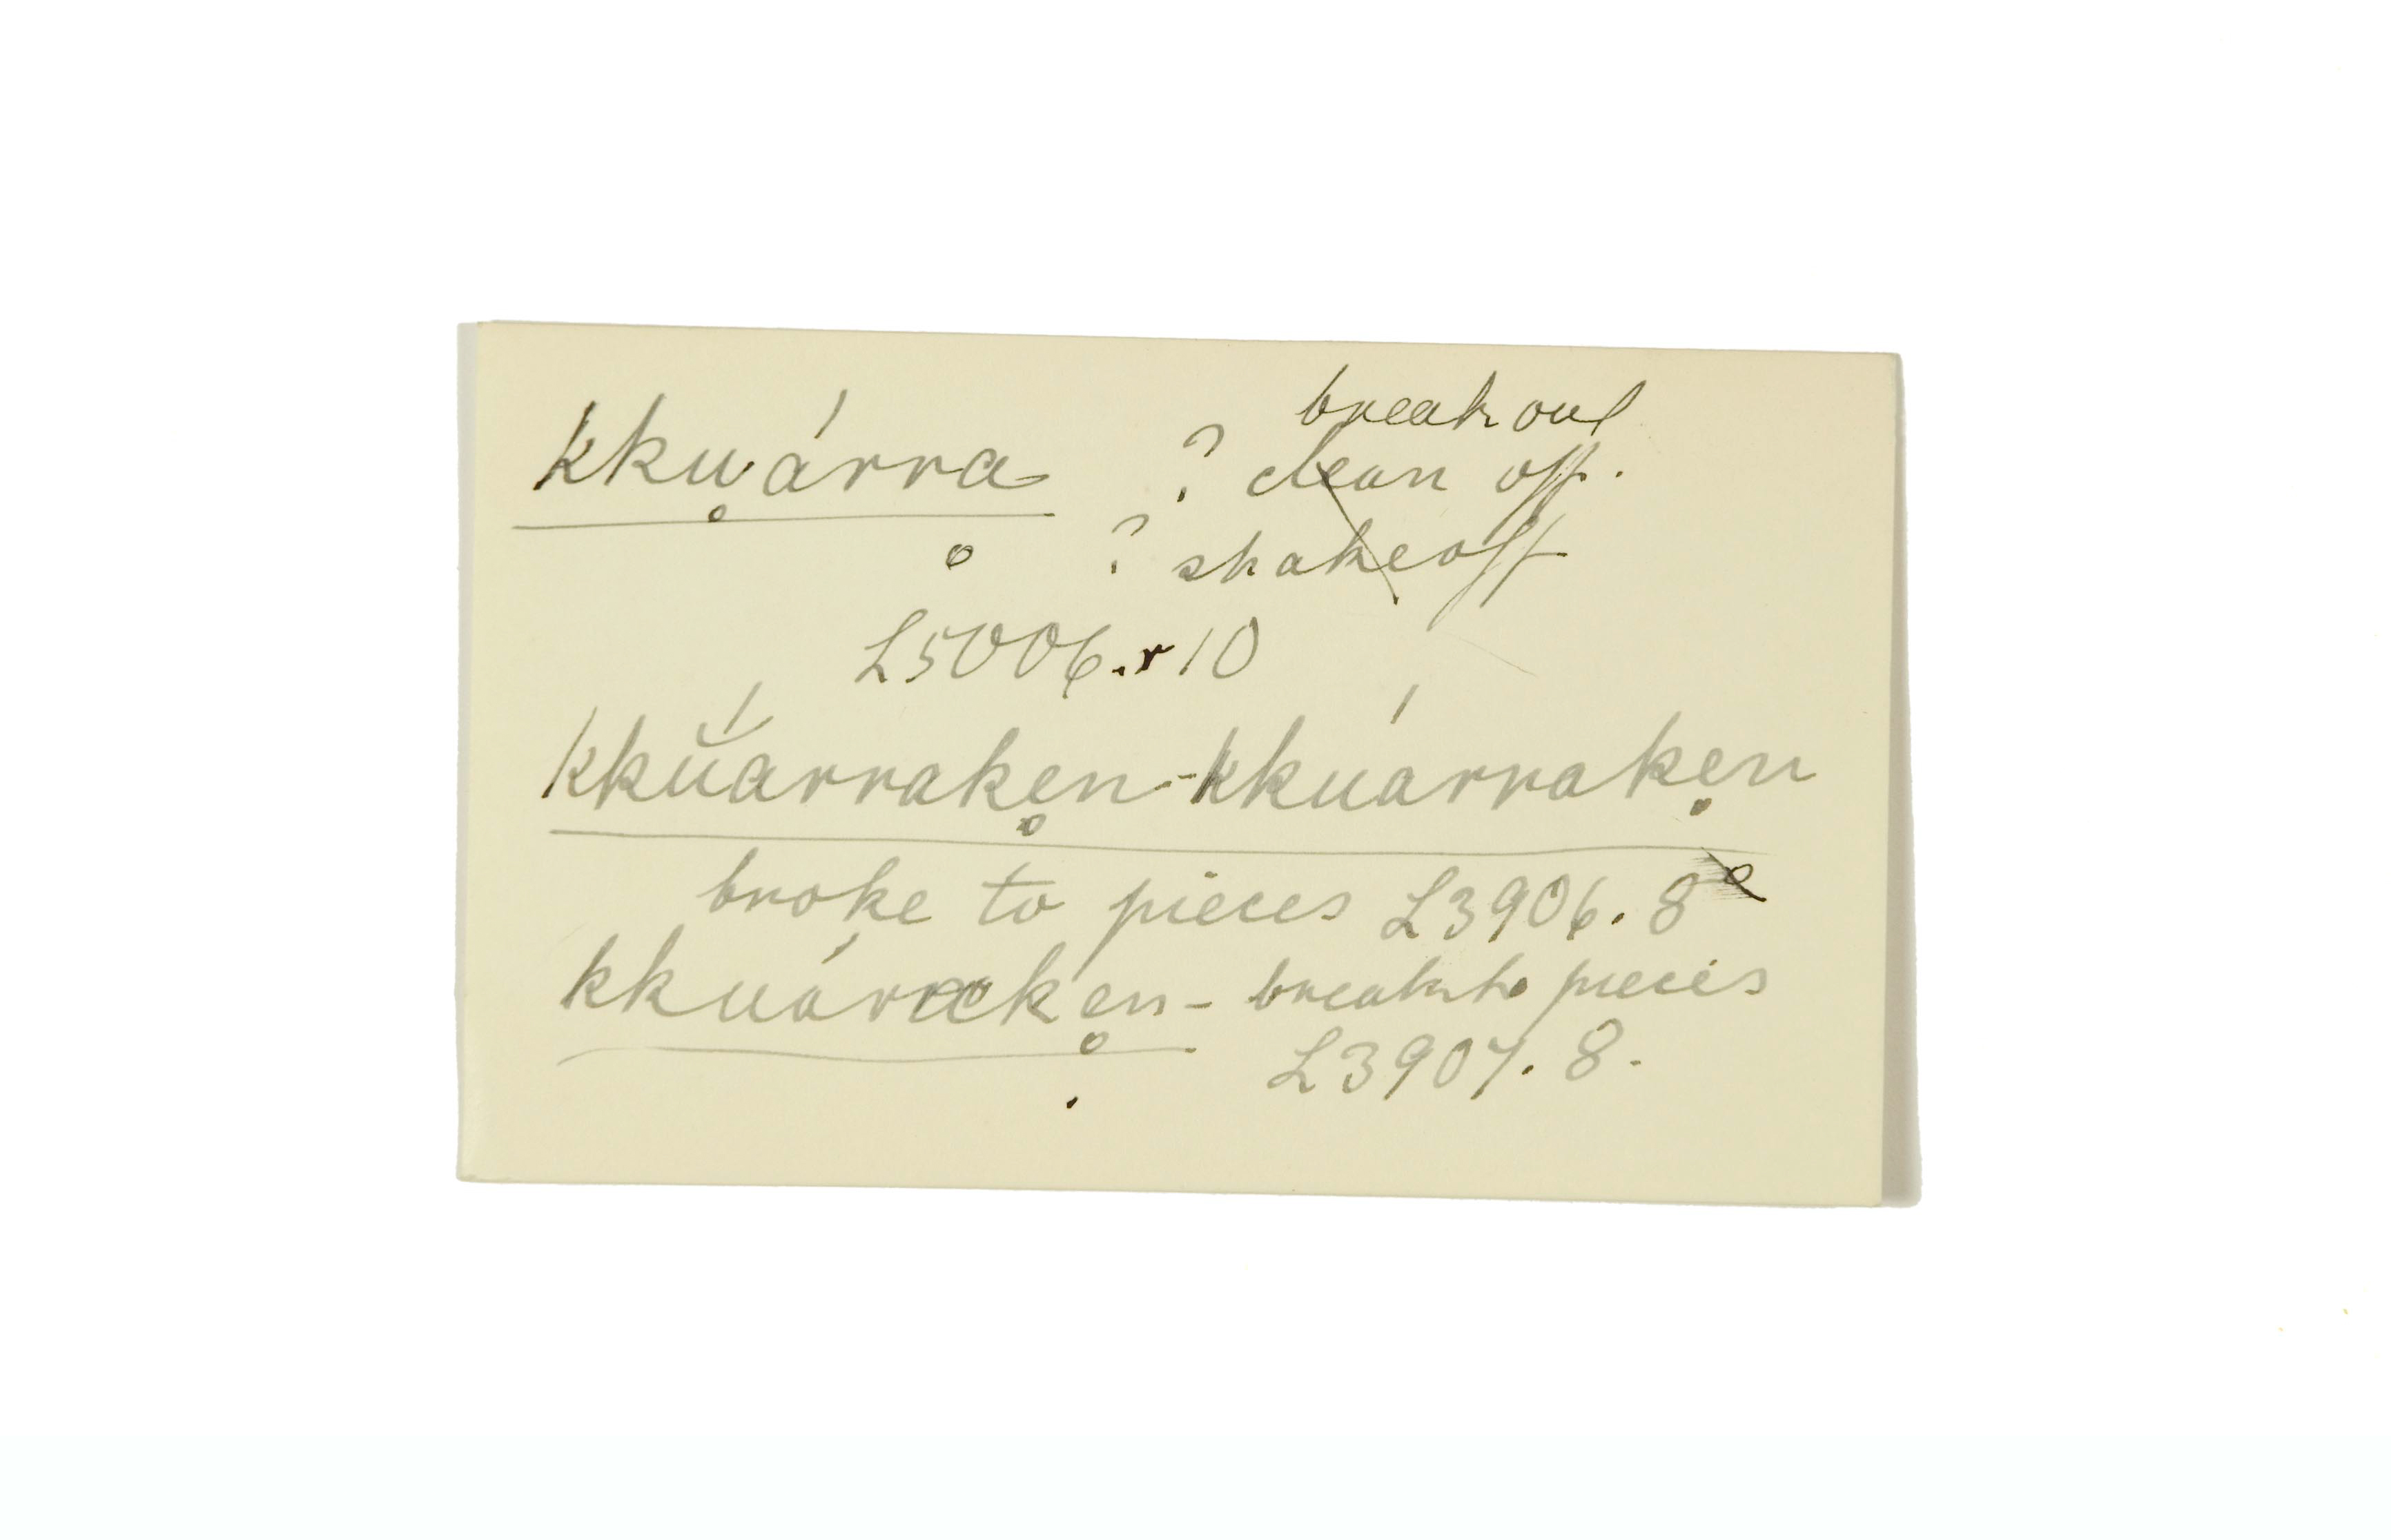 break out
kku̥árra ? clean off.
? shake off
L5006.r10
kkŭ́arrake̥n-kkuárrakẹn
broke to pieces L3906.8
kkuárrake̥n - break to pieces
L3907.8.